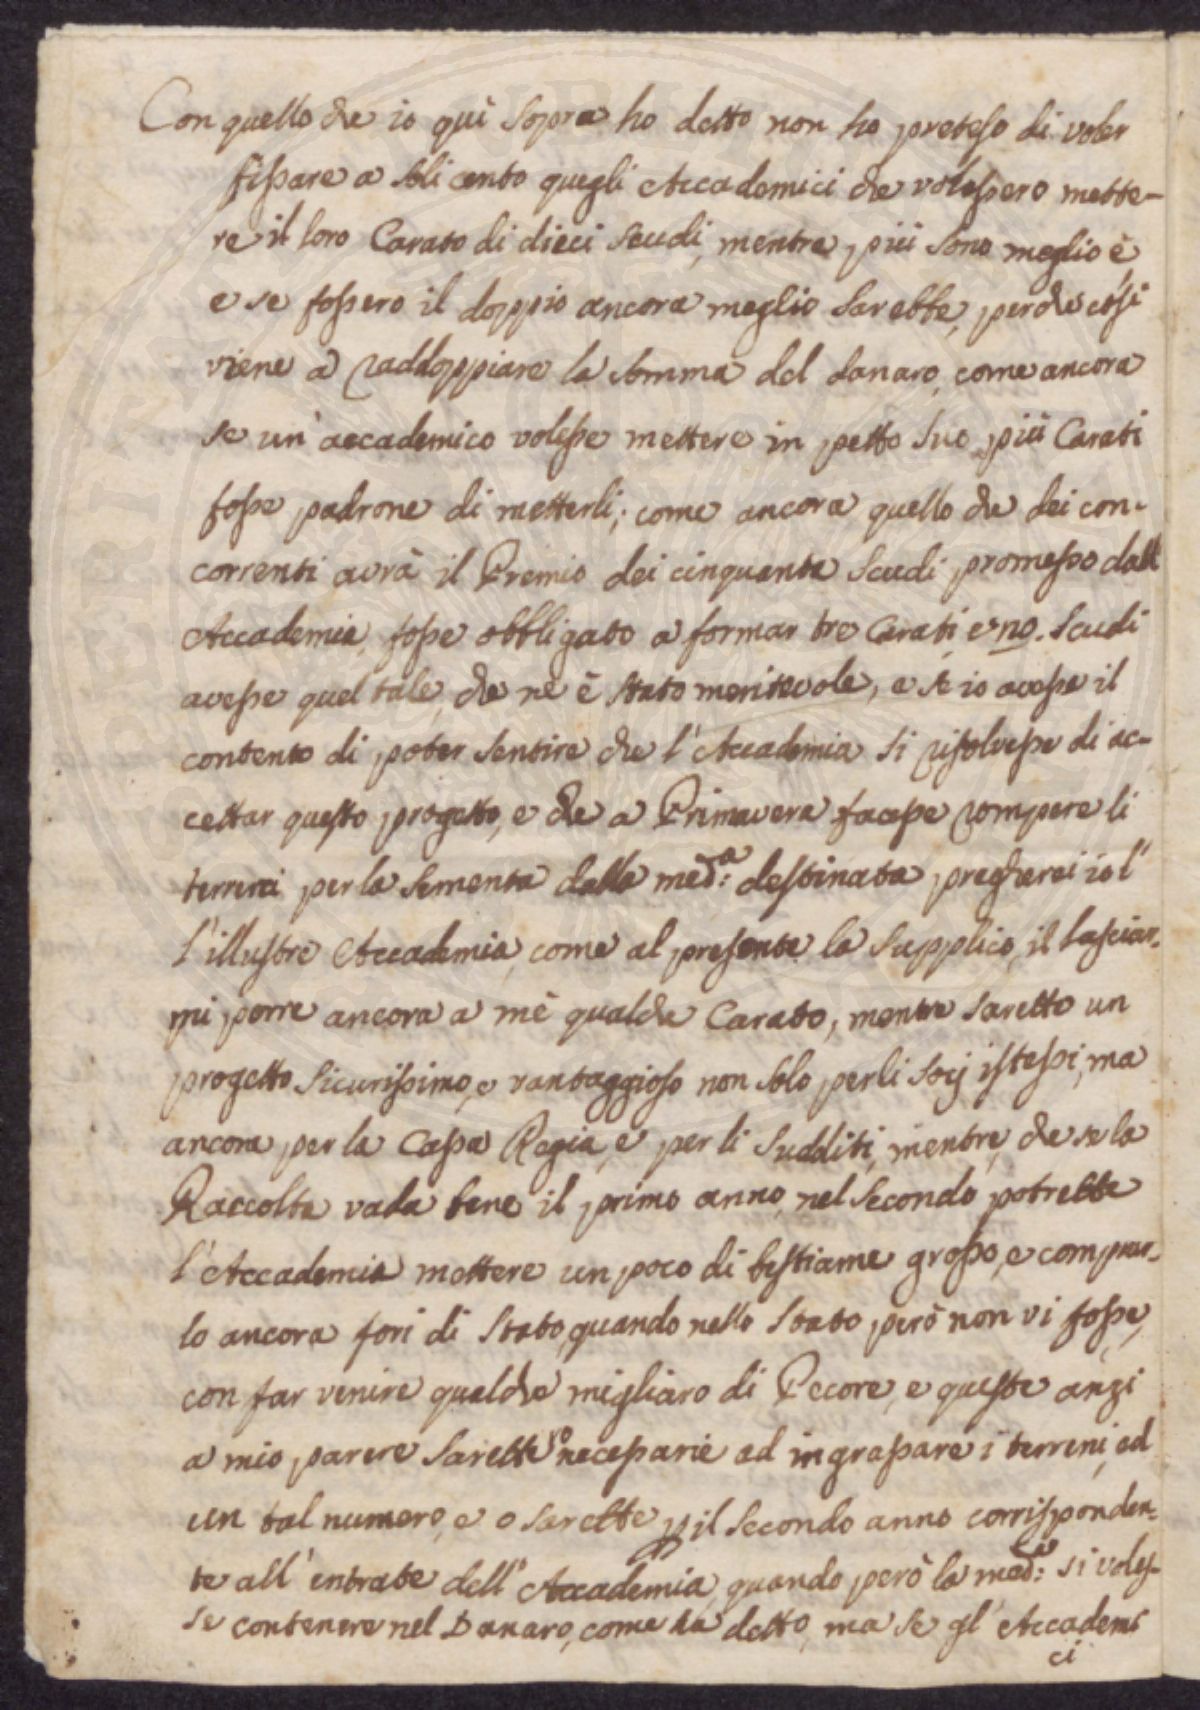 Con quello che io quì sopra ho detto non ho preteso di voler
fissare a soli cento quegli Accademici che volessero mette-
re il loro Carato di dieci scudi, mentre più sono meglio è
e se fossero il doppio ancora meglio sarebbe, perche così
viene a raddoppiare la somma del danaro, come ancora
se un' accademico volesse mettere in petto suo più Carati
fosse padrone di metterli; come ancora quello che dei con-
correnti avrà il Premio dei cinquanta scudi promesso dall
Accademia, fosse obbligato a formar tre Carati, e 20. scudi
avesse quel tale, che ne è stato meritevole, e se io avesse il
contento di poter sentire che l'Accademia si risolvesse di ac-
cettar questo progetto, e che a Primavera facesse rompere li
terreni per la sementa dalla med:a destinata pregherei io l'
l'illustre Accademia, come al presente la supplico, il lasciar-
mi porre ancora a mè qualche Carato, mentre sarebbe un
progetto sicurissimo, e vantaggioso non solo per li socij istessi, ma
ancora per la Cassa Regia, e per li sudditi, mentre, che se la
Raccolta vada bene il primo anno, nel secondo potrebbe
l'Accademia mettere un poco di bestiame grosso, e comprar-
lo ancora fori di stato, quando nello stato però non vi fosse,
con far venire qualche migliaro di Pecore, e queste anzi
a mio parere sarebbero necessarie ad ingrassare i terreni, ed
un tal numero, e o sarebbe p il secondo anno corrisponden-
te all' entrate dell' Accademia, quando però la med:a si voles-
se contenere nel Danaro, come ha detto, ma se gl' Accademi
ci